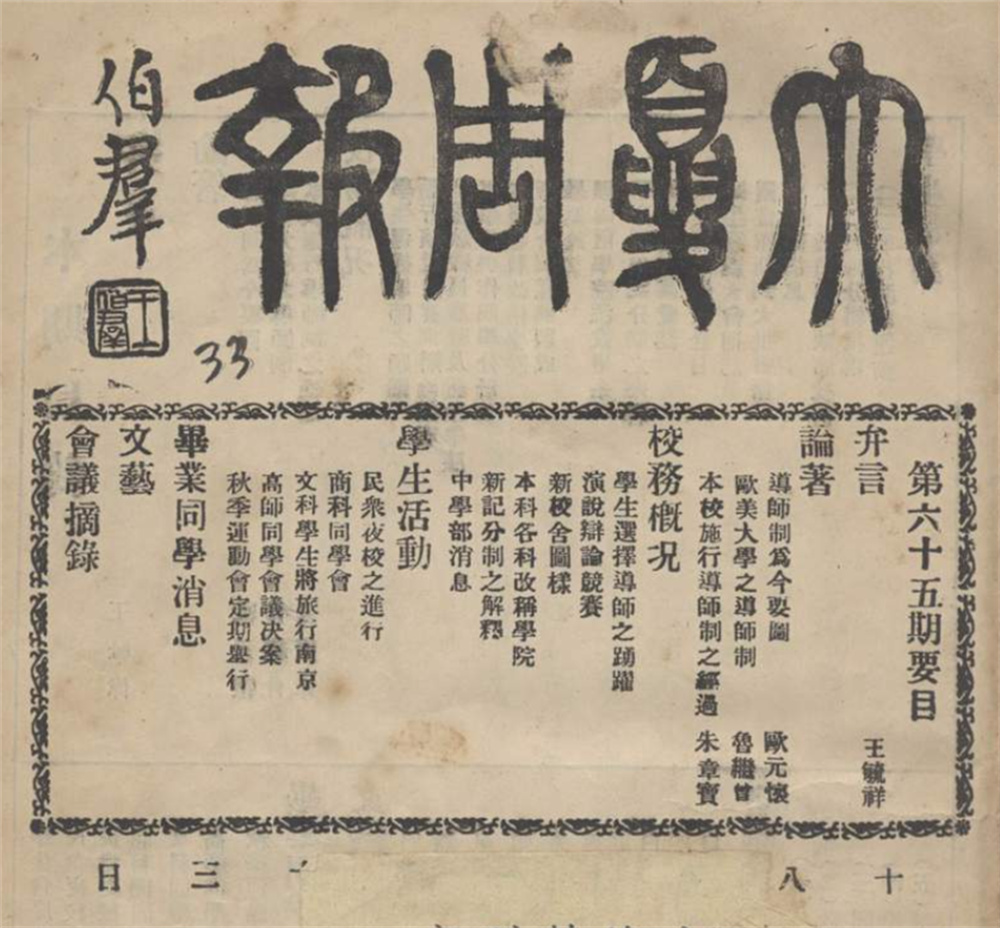 大夏周報
伯羣
王伯羣
33
第六十五期要目
弁言 王毓祥
論著
導師制爲今要圖 歐元懷
歐美大學之導師制 魯繼曾
本校施行導師制之經過 朱章寶
校務概况
學生選擇導師之踴躍
演說辯論競賽
新校舍圖樣
本科各科改稱學院
新記分制之解釋
中學部消息
學生活動
民衆夜校之進行
商科同學會
文科學生將旅行南京
高師同學會議决案
秋季運動會定期舉行
畢業同學消息
文藝
會議摘錄
十八
三日